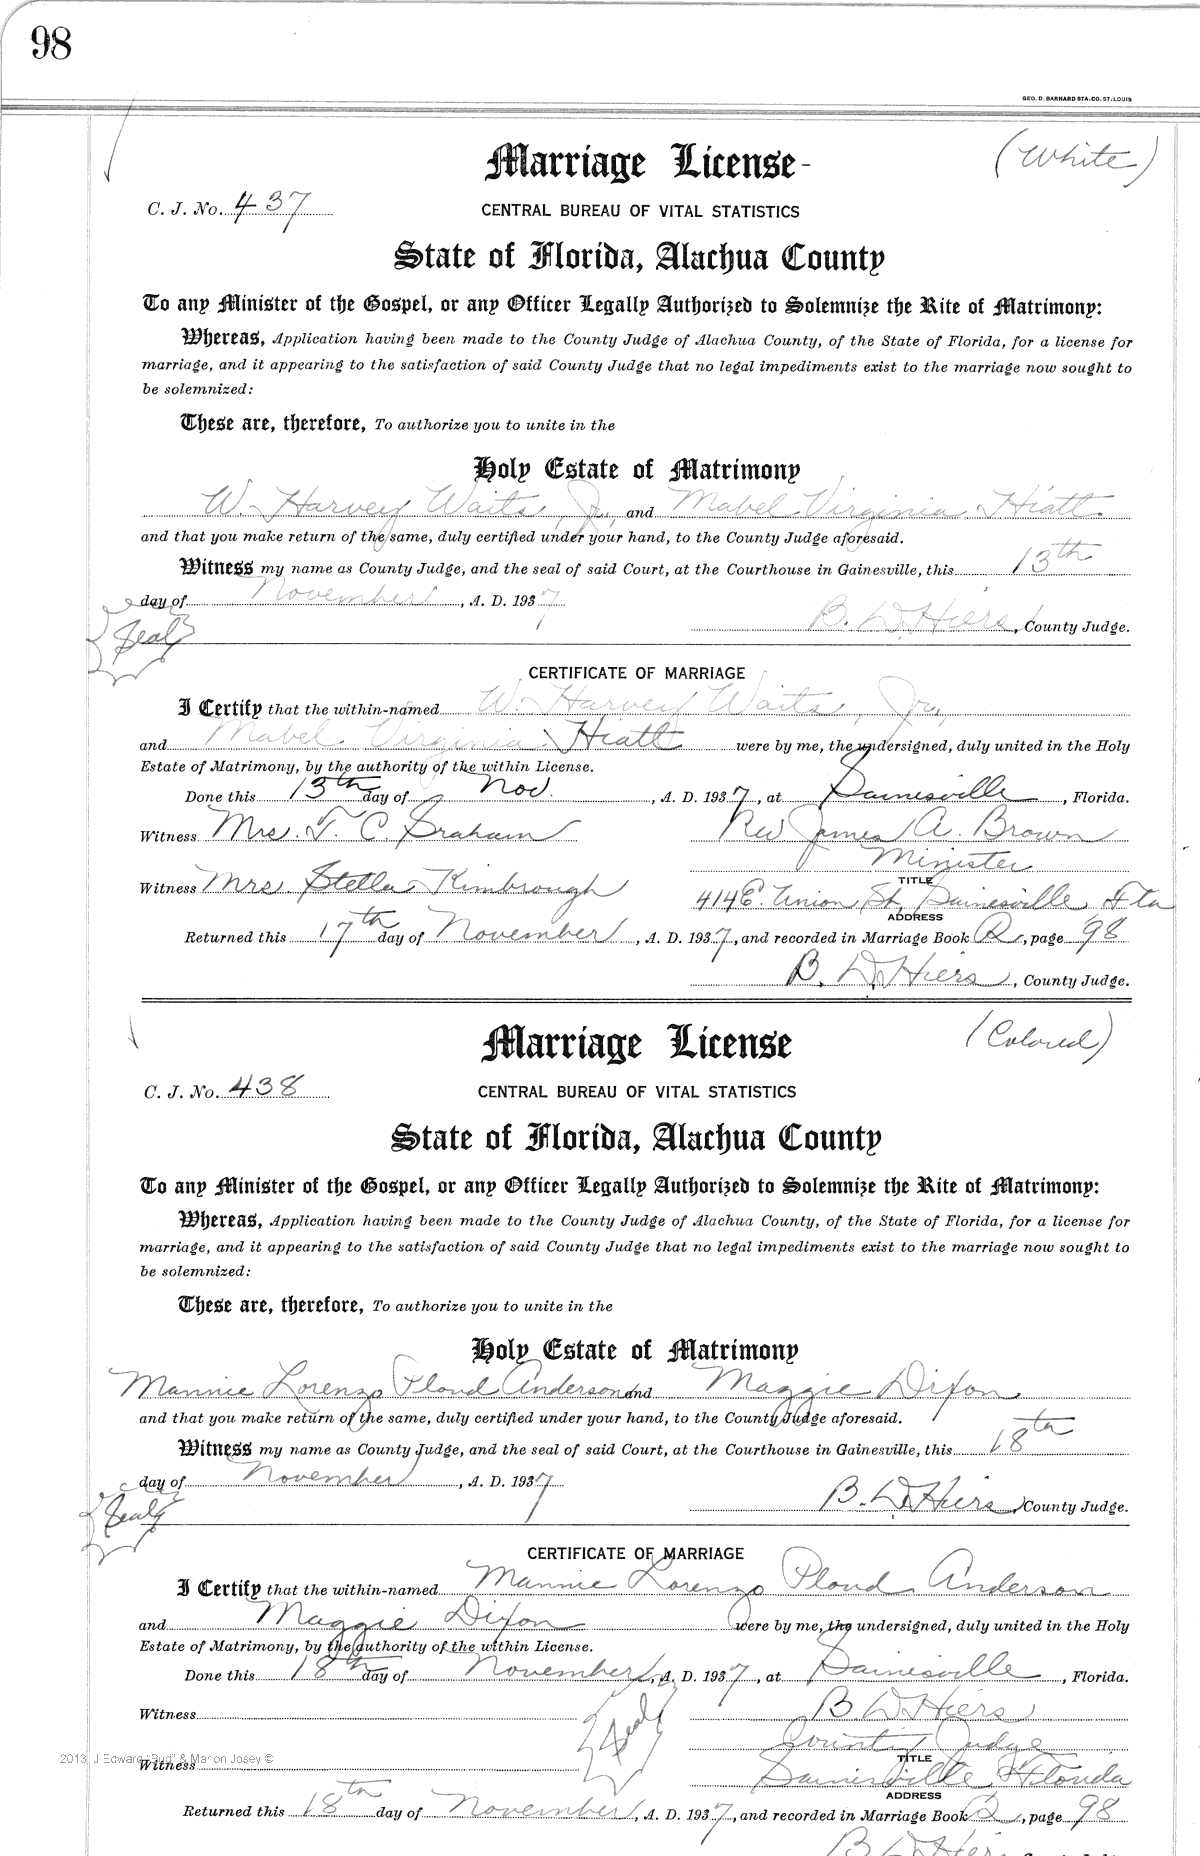 98
GEO. D. BARNARD STA. CO. ST. LOUIS
Marriage License-
(White)
C. J. No. 437
CENTRAL BUREAU OF VITAL STATISTICS
State of Florida, Alachua County
To any Minister of the Gospel, or any Officer Legally Authorized to Solemnize the Rite of Matrimony:
Whereas, Application having been made to the County Judge of Alachua County, of the State of Florida, for a license for
marriage, and it appearing to the satisfaction of said County Judge that no legal impediments exist to the marriage now sought to
be solemnized:
These are, therefore, To authorize you to unite in the
Holy Estate of Matrimony
W. Harvey Waits, Jr., and Mabel Virginia Hiatt
and that you make return of the same, duly certified under your hand, to the County Judge aforesaid.
Witness my name as County Judge, and the seal of said Court, at the Courthouse in Gainesville, this 13th
day of November, A. D. 1937
Seal
B. D. Hiers, County Judge.
CERTIFICATE OF MARRIAGE
I Certify that the within-named W. Harvey Waits, Jr.,
and Mabel Virginia Hiatt were by me, the undersigned, duly united in the Holy
Estate of Matrimony, by the authority of the within License.
Done this 13th day of Nov., A. D. 1937, at Gainesville, Florida.
Witness Mrs. T. C. Graham Rev James A. Brown
Minister
Witness Mrs. Stella Kimbrough TITLE
414 E. Union St, Gainesville Fla
ADDRESS
Returned this 17th day of November, A. D. 1937, and recorded in Marriage Book Q, page 98
B. D. Hiers, County Judge.
Marriage License
(Colored)
C. J. No. 438
CENTRAL BUREAU OF VITAL STATISTICS
State of Florida, Alachua County
To any Minister of the Gospel, or any Officer Legally Authorized to Solemnize the Rite of Matrimony:
Whereas, Application having been made to the County Judge of Alachua County, of the State of Florida, for a license for
marriage, and it appearing to the satisfaction of said County Judge that no legal impediments exist to the marriage now sought to
be solemnized:
These are, therefore, To authorize you to unite in the
Holy Estate of Matrimony
Mannie Lorenzo Ploud Anderson and Maggie Dixon
and that you make return of the same, duly certified under your hand, to the County Judge aforesaid.
Witness my name as County Judge, and the seal of said Court, at the Courthouse in Gainesville, this 18th
day of November, A. D. 1937
Seal
B. D. Hiers, County Judge.
CERTIFICATE OF MARRIAGE
I Certify that the within-named Mannie Lorenzo Ploud Anderson
and Maggie Dixon were by me, the undersigned, duly united in the Holy
Estate of Matrimony, by the authority of the within License.
Done this 18th day of November, A. D. 1937, at Gainesville, Florida.
Witness B. D. Hiers
Seal
County Judge
2013, J Edward "Bud" & Marion Josey ©
Witness TITLE
Gainesville, Florida
ADDRESS
Returned this 18th day of November, A. D. 1937, and recorded in Marriage Book Q, page 98
B. D. Hiers